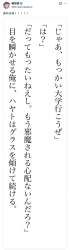 「じゃあ、もっかい大学行こうぜ」
「は？」
「だってもったいねえし。もう邪魔される心配ないんだろ？」
目を瞬かせる俺に、ハヤトはグラスを傾けて続ける。